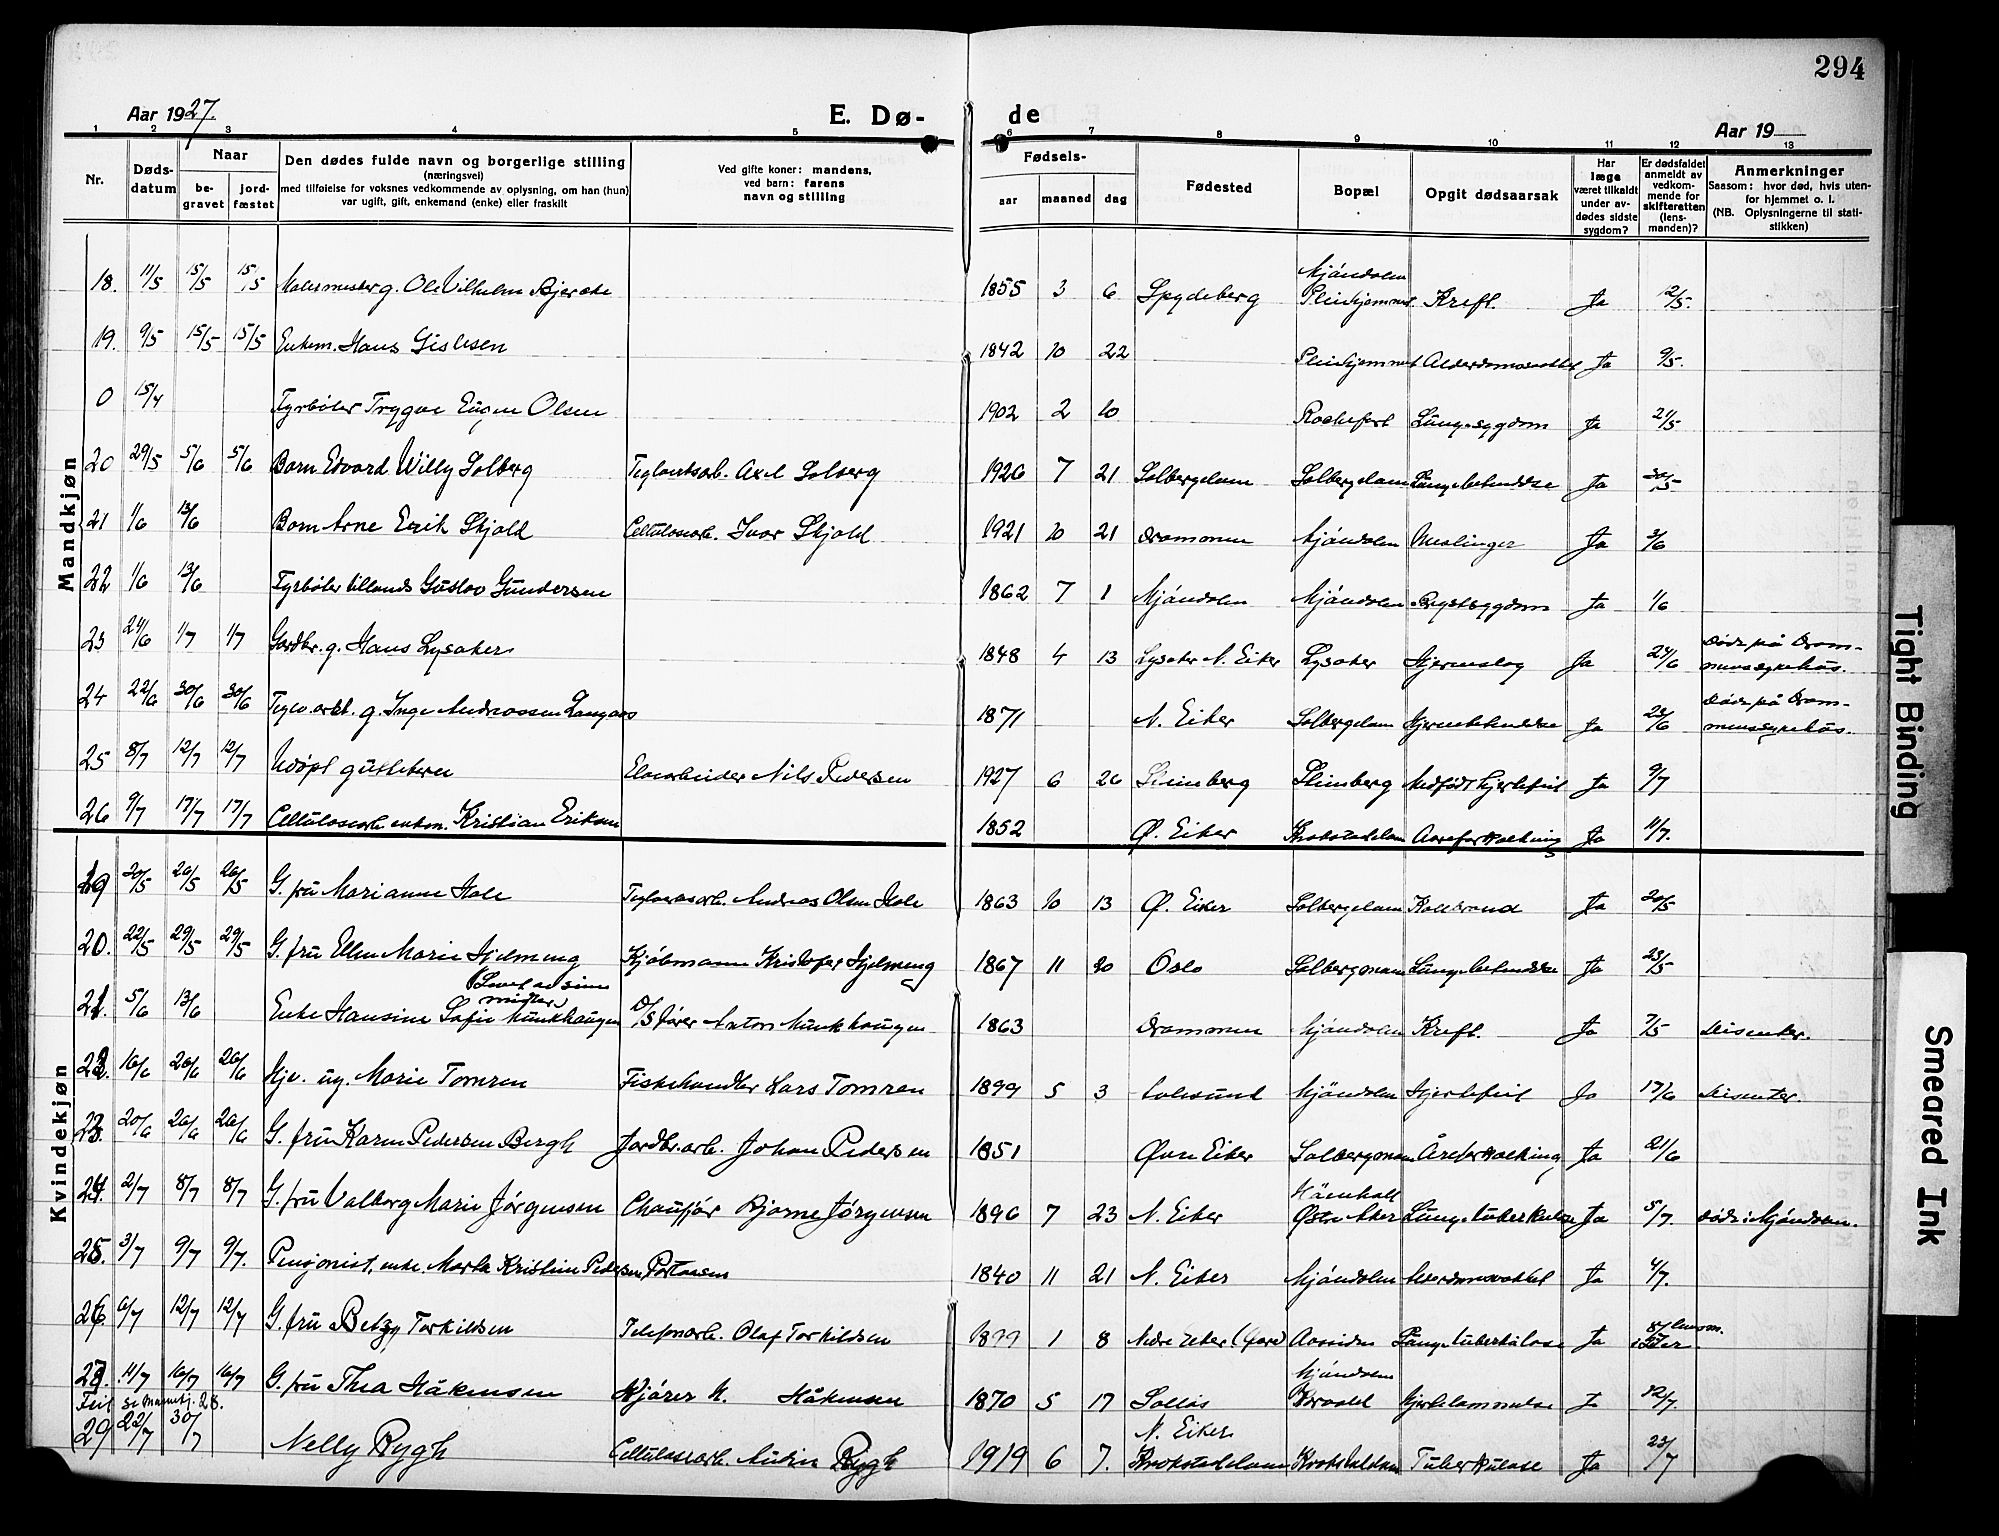 294
Aar 1927.
E. Dø-
de
Aar 19
1 2 3 4 5 6 7 8 9 10 11 12 13
Nr.
Døds-
datum
Naar
be-
gravet
jord-
fæstet
Den dødes fulde navn og borgerlige stilling
(næringsvei)
med tilføielse for voksnes vedkommende av oplysning, om han (hun)
var ugift, gift, enkemand (enke) eller fraskilt
Ved gifte koner: mandens,
ved barn: farens
navn og stilling
Fødsels-
aar maaned dag
Fødested
Bopæl
Opgit dødsaarsak
Har
læge
været tilkaldt
under av-
dødes sidste
sygdom?
Er dødsfaldet
anmeldt av
vedkom-
mende for
skifteretten
(lens-
manden)?
Anmerkninger
Saasom: hvor død, hvis uten-
for hjemmet o. l.
(NB. Oplysningerne til stati-
stikken)
Mandkjøn
Mjøndalen
18. 11/5 15/5 15/5 Malermester g. Ole Vilhelm Bjercke 1855 3 6 Spydeberg Pleiehjemmet Kreft. Ja 12/5.
19. 9/5 15/5 15/5 Enkem. Hans Gislesen 1842 10 22 Pleiehjemmet Alderdomssvakhet Ja 9/5.
0 15/4 Fyrbøter Trygve Eugen Olsen 1902 2 10 Lungesygdom Ja 21/5
20 29/5 5/6 5/6 Barn Edvard Willy Solberg Teglverksarb. Axel Solberg 1926 7 21 Solbergelven Solbergelven Lungebetendelse Ja 30/5
21 1/6 13/6 Barn Arne Erik Skjold Cellulosearb. Ivar Skjold 1921 10 21 Drammen Mjøndalen Meslinger Ja 3/6
22 1/6 13/6 Fyrbøter tillands Gustav Gundersen 1862 7 1 Mjøndalen Mjøndalen Brystsygdom Ja 1/6
23 24/6 1/7 1/7 Gardbr. g. Hans Lysaker 1848 4 13 Lysaker N. Eiker Lysaker Hjerneslag Ja 24/6 Døde på Dram-
menssykehus.
24 22/6 30/6 30/6 Teglv.arb. g. Inge Andreassen Langaas 1871 N. Eiker Solbergelven Hjernebetendelse Ja 23/6 Døde på Dram-
menssykehus.
25 8/7 12/7 12/7 Udøpt guttebarn Elvearbeider Nils Pedersen 1927 6 26 Steinberg Steinberg Medfødt hjertefeil Ja 9/7
26 9/7 17/7 17/7 Cellulosearb. enkem. Kristian Eriksen 1852 Ø. Eiker Krokstadelven Aareforkalkning Ja 11/7.
Kvindekjøn
19 20/5 26/5 26/5 G. fru Marianne Hole Teglverksarb. Andreas Olsen Hole 1863 10 13 Ø. Eiker Solbergelven Koldbrand Ja 20/5
20. 22/5 29/5 29/5 G. fru Ellen Marie Hjelmeng Kjøbmann Kristofer Hjelmeng 1867 11 20 Oslo Solbergmoen Lungebetendelse Ja 23/5
(Levet av sine
midler)
21. 5/6 13/6 Enke Hansine Sofie Munkhaugen D/S fører Anton Munkhaugen 1863 Drammen Mjøndalen Kreft. Ja 7/5 Disenter.
22. 16/6 26/6 26/6 Hjv. ug. Marie Tomren Fiskehandler Lars Tomren 1899 5 3 Aalesund Mjøndalen Hjertefeil Ja 17/6 Disenter.
23. 20/6 26/6 26/6 G. fru Karen Pedersen Bergh Jordbr.arb. Johan Pedersen 1851 Øvre Eiker Solbergmoen Åreforkalkning Ja 21/6
24. 2/7 8/7 8/7 G. fru Valborg Marie Jørgensen Chauffør Bjarne Jørgensen 1896 7 23 N. Eiker Østre Aker Lungetuberkulose Ja 5/7. Døde i Mjøndalen.
25. 3/7 9/7 9/7. Pensjonist, enke. Marta Kristine Pedersen Portaasen 1840 11 21 N. Eiker Mjøndalen Alderdomssvakhet Ja 4/7.
26. 6/7 12/7 12/7 G. fru Betzy Torkildsen Telefonarb. Olaf Torkildsen 1899 1 8 Nedre Eiker Aasiden Lungetuberkulose Ja 8/7
Mjøndalen
27. 11/7 16/7 16/7 G. fru Thea Håkensen Kjører M. Håkensen 1870 5 17 Solløs Hjertelammelse Ja 12/7.
Feil se mannkj. 28.
N. Eiker
29 22/7 30/7 Nelly Rygh Cellulosearb. Audin Rygh 1919 6 7. Krokstadelven Krokstadelven Tuberkulose Ja 23/7
Tight Binding
Smeared Ink